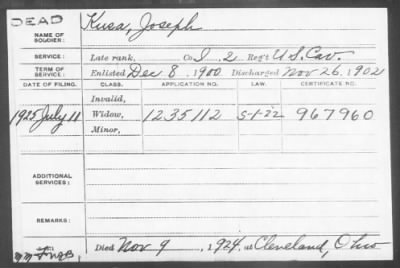 DEAD
NAME OF SOLDIER: Kusa, Joseph
SERVICE: Late rank, Co. I 2 Reg't U.S. Cav.
TERM OF SERVICE: Enlisted Dec 8, 1900 Discharged Nov 26, 1902
DATE OF FILING. CLASS. APPLICATION NO. LAW. CERTIFICATE NO.
Invalid,
1925 July 11 Widow, 1235112 5-1-22 967960
Minor,
ADDITIONAL SERVICES:
REMARKS:
Died Nov 9, 1924, at Cleveland, Ohio